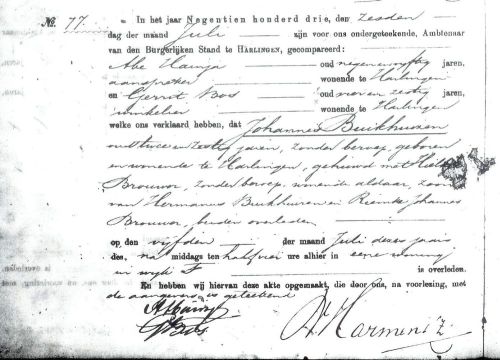 No. 77. = In het jaar Negentien honderd drie, den zesden
dag der maand Juli zijn voor ons ondergeteekende, Ambtenaar
van den Burgerlijken Stand te HARLINGEN, gecompareerd:
Abe Hainja oud negenenvijftig jaren,
aanspreker wonende te Harlingen
en Gerrit Bos oud en zestig jaren,
winkelier wonende te Harlingen
welke ons verklaard hebben, dat Johannes Buikhuizen
oud twee en zestig jaren, zonder beroep, geboren
en wonende te Harlingen, gehuwd met
Brouwer, zonder beroep, wonende aldaar, zoon
van Hermanus Buikhuizen en Reinke Johannes
Brouwer, beiden overleden
op den vijfden der maand Juli dezes jaars
des na middags ten half vier ure alhier in eene woning
in wijk F is overleden.
En hebben wij hiervan deze akte opgemaakt, die door ons, na voorlezing, met
de aangevers is geteekend
AHainja
GBos
Harmens Z.